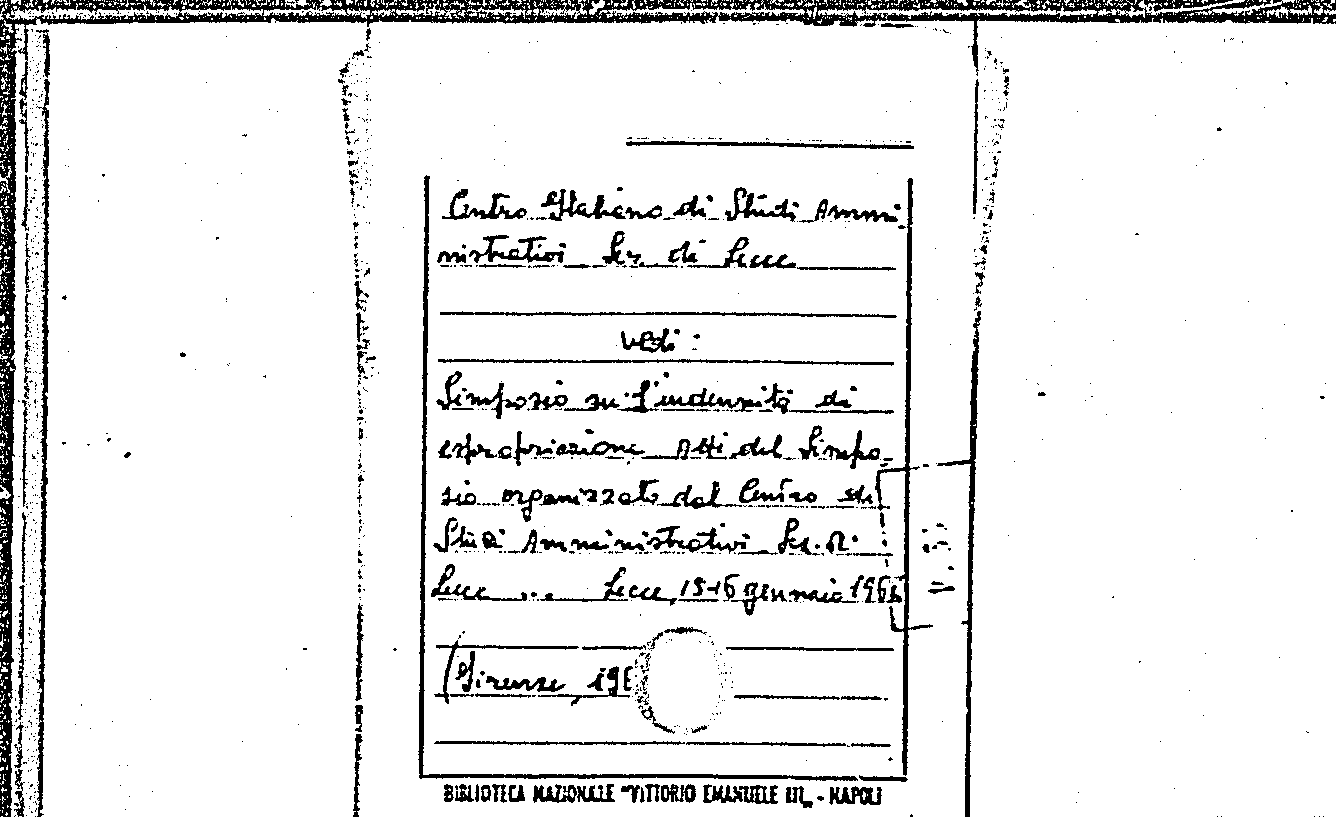 Centro Italiano di Studi Ammi
nistrativi Sez. di Lecce
vedi:
Simposio su l'indennità di
espropriazione Atti del Simpo-
sio organizzato dal Centro di
Studi Amministrativi Sez. di
Lecce ... Lecce, 15-16 gennaio 196
(Firenze, 196
BIBLIOTECA NAZIONALE "VITTORIO EMANUELE III" - NAPOLI